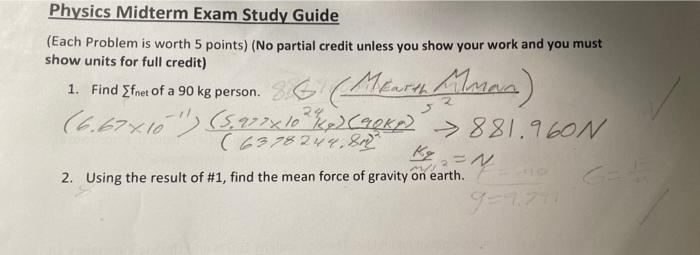 Physics Midterm Exam Study Guide
(Each Problem is worth 5 points) (No partial credit unless you show your work and you must
show units for full credit)
1. Find ∑fnet of a 90 kg person. G (MEarth Mman)
(6.67x10⁻¹¹) (5.977x10²⁴kg)(90kg) → 881.960N
(6378244.8m)²
= N
2. Using the result of #1, find the mean force of gravity on earth.